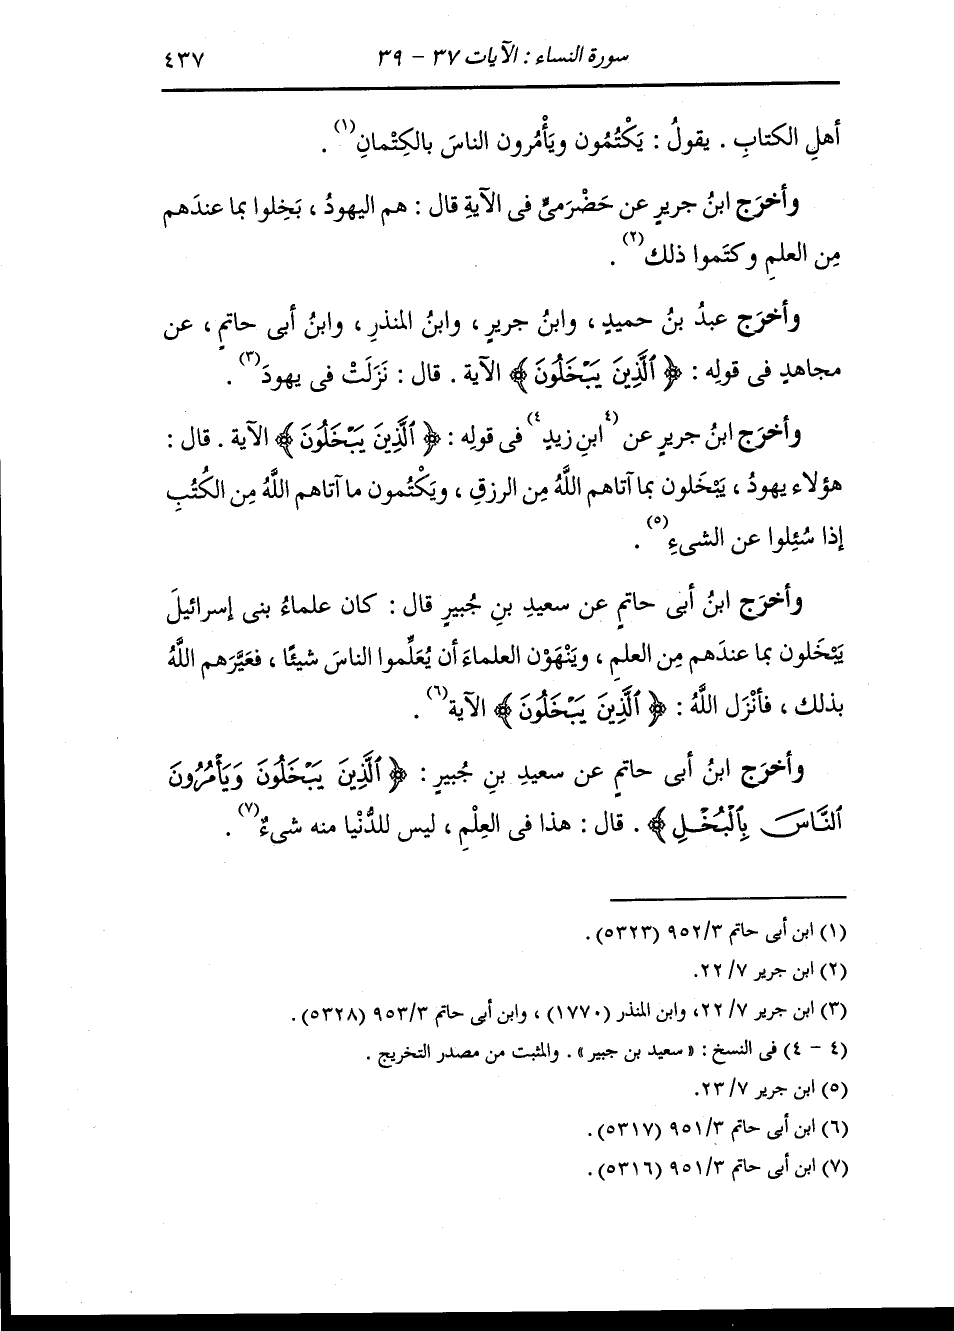 سورة النساء : الآيات ٣٧ - ٣٩ ٤٣٧
أهلِ الكتابِ . يقولُ : يَكْتُمُون ويَأْمُرون الناسَ بالكِتْمانِ(١) .
وأخرَج ابنُ جريرٍ عن حَضْرَمىٍّ فى الآيةِ قال : هم اليهودُ ، بَخِلوا بما عندَهم
مِن العلمِ وكتَموا ذلك(٢) .
وأخرَج عبدُ بنُ حميدٍ ، وابنُ جريرٍ ، وابنُ المنذرِ ، وابنُ أبى حاتمٍ ، عن
مجاهدٍ فى قولِه : ﴿ ٱلَّذِينَ يَبْخَلُونَ ﴾ الآية . قال : نَزَلَتْ فى يهودَ(٣) .
وأخرَج ابنُ جريرٍ عن (٤ابنِ زيدٍ٤) فى قولِه : ﴿ ٱلَّذِينَ يَبْخَلُونَ ﴾ الآية . قال :
هؤلاء يهودُ ، يَبْخَلون بما آتاهم اللَّهُ مِن الرزقِ ، ويَكْتُمون ما آتاهم اللَّهُ مِن الكُتُبِ
إذا سُئِلوا عن الشىءِ(٥) .
وأخرَج ابنُ أبى حاتمٍ عن سعيدِ بنِ جُبيرٍ قال : كان علماءُ بنى إسرائيلَ
يَبْخَلون بما عندَهم مِن العلمِ ، ويَنْهَوْن العلماءَ أن يُعَلِّموا الناسَ شيئًا ، فعَيَّرَهم اللَّهُ
بذلك ، فأنْزَل اللَّهُ : ﴿ ٱلَّذِينَ يَبْخَلُونَ ﴾ الآية(٦) .
وأخرَج ابنُ أبى حاتمٍ عن سعيدِ بنِ جُبيرٍ : ﴿ ٱلَّذِينَ يَبْخَلُونَ وَيَأْمُرُونَ
ٱلنَّاسَ بِٱلْبُخْلِ ﴾ . قال : هذا فى العِلْمِ ، ليس للدُّنْيا منه شىءٌ(٧) .
(١) ابن أبى حاتم ٩٥٢/٣ (٥٣٢٣).
(٢) ابن جرير ٢٢/٧.
(٣) ابن جرير ٢٢/٧، وابن المنذر (١٧٧٠) ، وابن أبى حاتم ٩٥٣/٣ (٥٣٢٨).
(٤ - ٤) فى النسخ : « سعيد بن جبير » . والمثبت من مصدر التخريج .
(٥) ابن جرير ٢٣/٧.
(٦) ابن أبى حاتم ٩٥١/٣ (٥٣١٧).
(٧) ابن أبى حاتم ٩٥١/٣ (٥٣١٦).